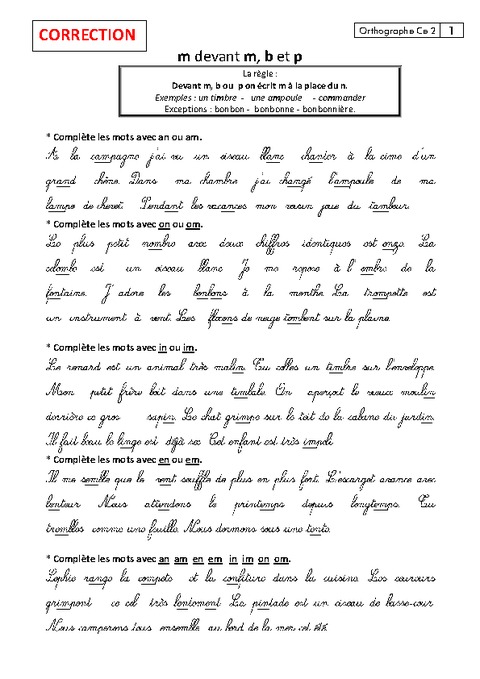 CORRECTION
Orthographe Ce 2
1
m devant m, b et p
La règle :
Devant m, b ou p on écrit m à la place du n.
Exemples : un timbre - une ampoule - commander
Exceptions : bonbon - bonbonne - bonbonnière.
* Complète les mots avec an ou am.
A la campagne j'ai vu un oiseau blanc chanter à la cime d'un
grand chêne. Dans ma chambre j'ai changé l'ampoule de ma
lampe de chevet. Pendant les vacances mon voisin joue du tambour.
* Complète les mots avec on ou om.
Le plus petit nombre avec deux chiffres identiques est onze. La
colombe est un oiseau blanc Je me repose à l'ombre de la
fontaine. J'adore les bonbons à la menthe. La trompette est
un instrument à vent. Les flocons de neige tombent sur la plaine.
* Complète les mots avec in ou im.
Le renard est un animal très malin. Tu colles un timbre sur l'enveloppe.
Mon petit frère boit dans une timbale. On aperçoit le vieux moulin
derrière ce gros sapin. Le chat grimpe sur le toit de la cabane du jardin.
Il fait beau le linge est déjà sec Cet enfant est très impoli.
* Complète les mots avec en ou em.
Il me semble que le vent souffle de plus en plus fort. L'escargot avance avec
lenteur Nous attendons le printemps depuis longtemps. Tu
trembles comme une feuille. Nous dormons sous une tente.
* Complète les mots avec an am en em in im on om.
Sophie range la compote et la confiture dans la cuisine. Les coureurs
grimpent ce col très lentement La pintade est un oiseau de basse-cour
Nous camperons tous ensemble au bord de la mer cet été.